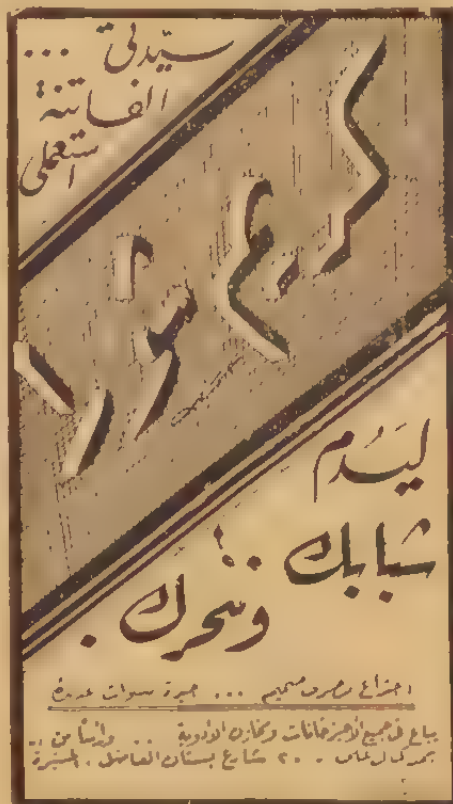 سيدتى ...
الفاتنة
استعملى
كريم
لَيَدُم
شبابك ..
وسحرك .
اختراع مصرى صميم ... خبرة سنوات عديدة
يباع فى جميع الأجزخانات ومخازن الأدوية .. ورأساً من ..
محمد كمال على .. ٢٠ شارع بستان الفاضل . المنيرة